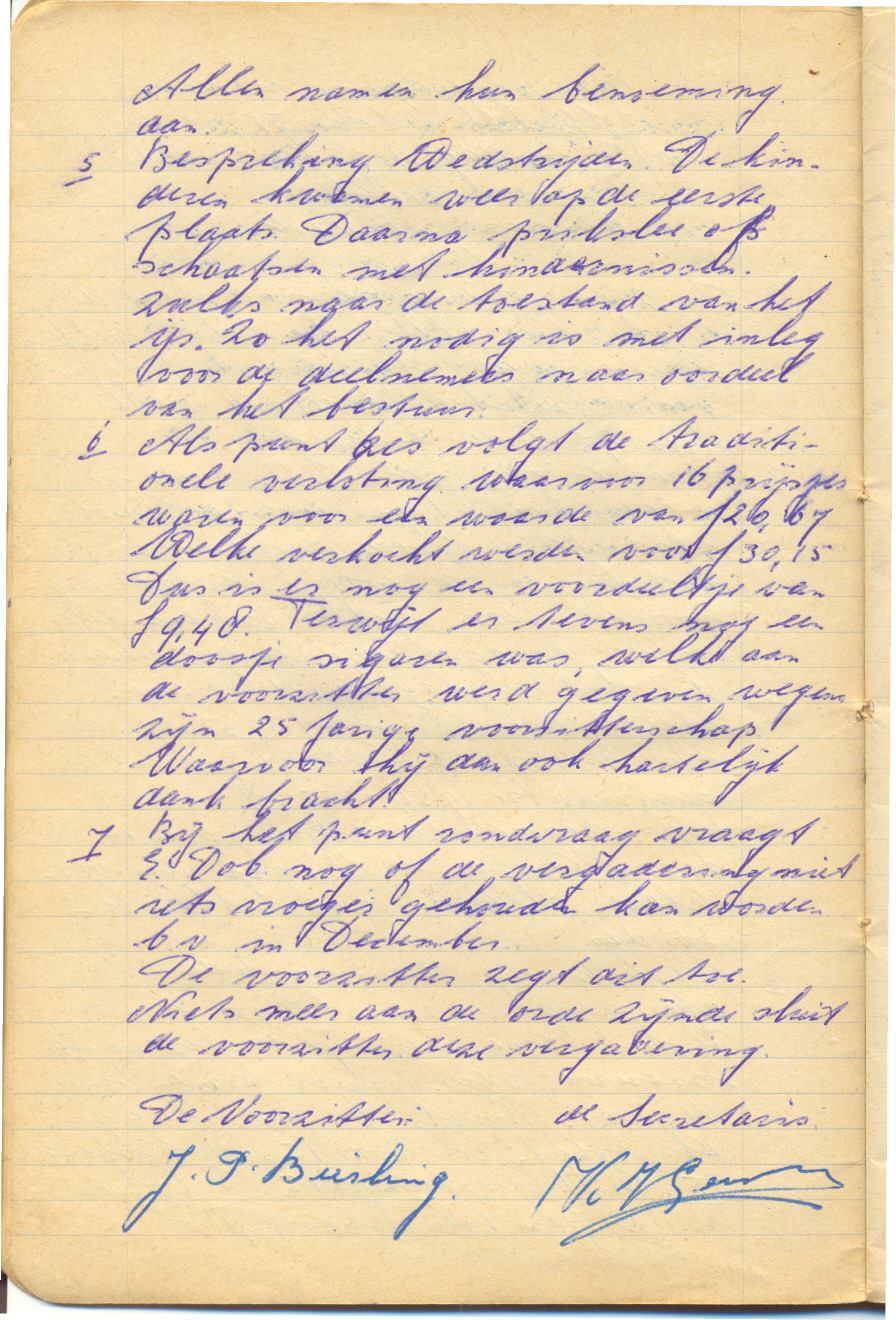 Allen namen hun benoeming
aan.
5 Bespreking Wedstrijden. De kin-
deren kwamen weer op de eerste
plaats. Daarna prikslee of
schaatsen met hindernissen.
zulks naar de toestand van het
ijs. Zo het nodig is met inleg
voor de deelnemers naar oordeel
van het bestuur
6 Als punt zes volgt de traditi-
onele verloting waarvoor 16 prijsjes
waren voor een waarde van f 20,67
Welke verkocht werden voor f 30,15
Dus is er nog een voordeeltje van
f 9,48. Terwijl er tevens nog een
doosje sigaren was, welke aan
de voorzitter werd gegeven wegens
zijn 25 jarige voorzitterschap
Waarvoor hij dan ook hartelijk
dank bracht.
7 Bij het punt rondvraag vraagt
E. Dob nog of de vergadering niet
iets vroeger gehouden kan worden
b v in December.
De voorzitter zegt dit toe.
Niets meer aan de orde zijnde sluit
de voorzitter deze vergadering.
De Voorzitter de Secretaris.
J. P. Bierling.